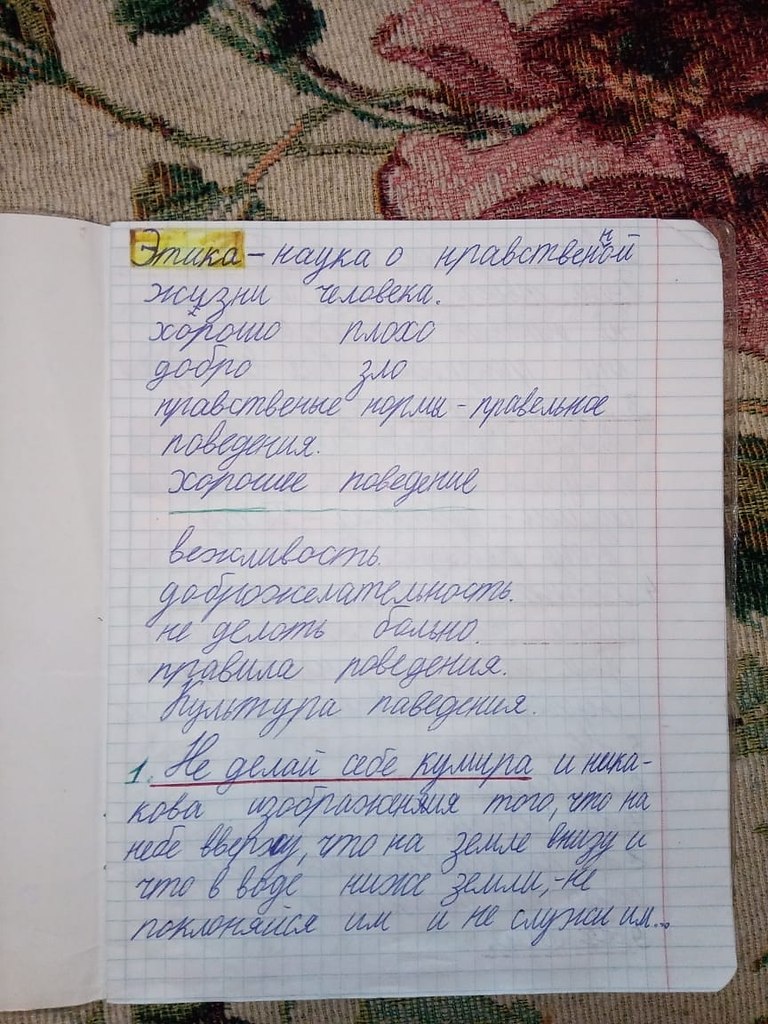 Этика - наука о нравственной
жизни человека.
хорошо плохо
добро зло
нравственые нормы - правельное
поведения.
хорошее поведение
вежливость.
доброжелательность.
не делать больно.
правила поведения.
Культура паведения.
1. Не делай себе кумира и ника-
кова изображения того, что на
небе вверху, что на земле внизу и
что в воде ниже земли, - не
поклоняйся им и не служи им...